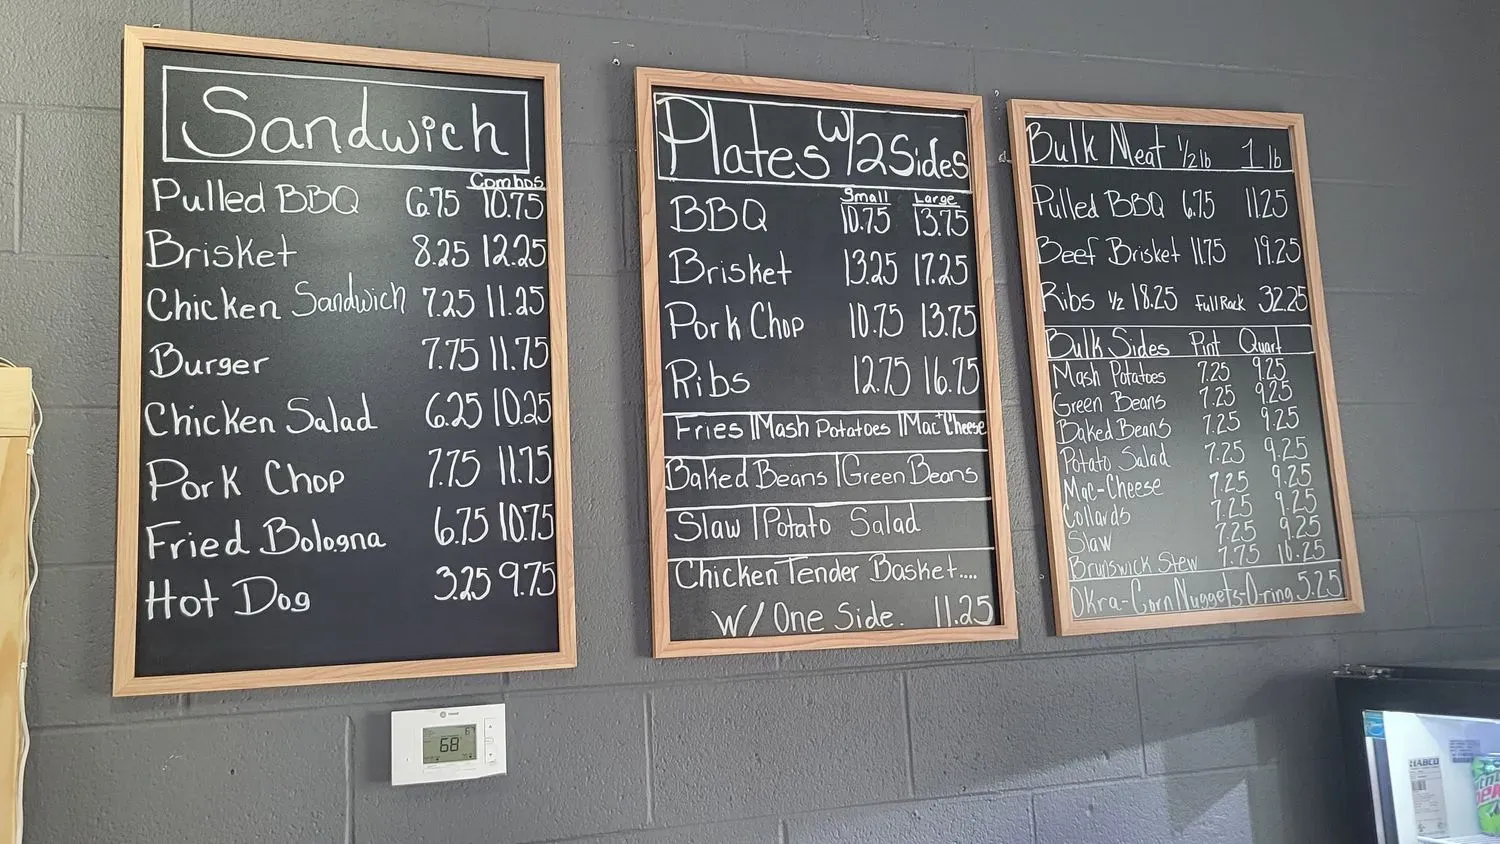 Sandwich
Combos
Pulled BBQ 6.75 10.75
Brisket 8.25 12.25
Chicken Sandwich 7.25 11.25
Burger 7.75 11.75
Chicken Salad 6.25 10.25
Pork Chop 7.75 11.75
Fried Bologna 6.75 10.75
Hot Dog 3.25 9.75
Plates w/2 Sides
Small Large
BBQ 10.75 13.75
Brisket 13.25 17.25
Pork Chop 10.75 13.75
Ribs 12.75 16.75
Fries | Mash Potatoes | Mac+Cheese
Baked Beans | Green Beans
Slaw | Potato Salad
Chicken Tender Basket....
w/ One Side. 11.25
Bulk Meat 1/2 lb 1 lb
Pulled BBQ 6.75 11.25
Beef Brisket 11.75 19.25
Ribs 1/2 18.25 Full Rack 32.25
Bulk Sides Pint Quart
Mash Potatoes 7.25 9.25
Green Beans 7.25 9.25
Baked Beans 7.25 9.25
Potato Salad 7.25 9.25
Mac-Cheese 7.25 9.25
Collards 7.25 9.25
Slaw 7.25 9.25
Brunswick Stew 7.75 10.25
Okra-Corn Nuggets-O-ring 5.25
68
HABCO